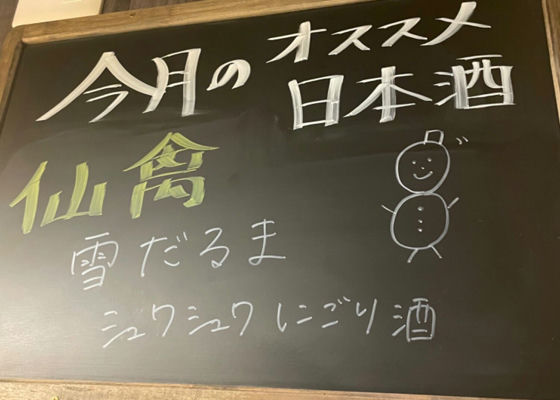 今月のオススメ
日本酒
仙禽
雪だるま
シュワシュワにごり酒